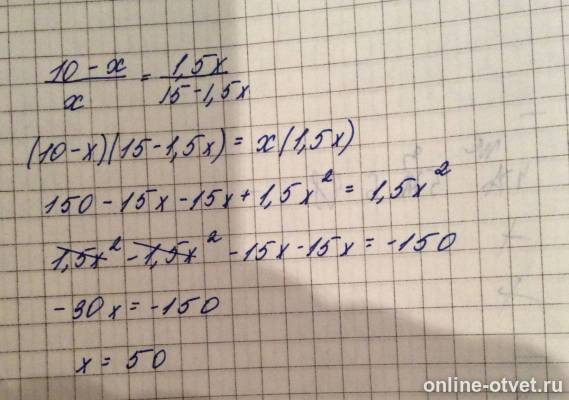 10 - x / x = 1,5x / 15 - 1,5x
(10 - x)(15 - 1,5x) = x(1,5x)
150 - 15x - 15x + 1,5x² = 1,5x²
1,5x² - 1,5x² - 15x - 15x = -150
-30x = -150
x = 50
online-otvet.ru